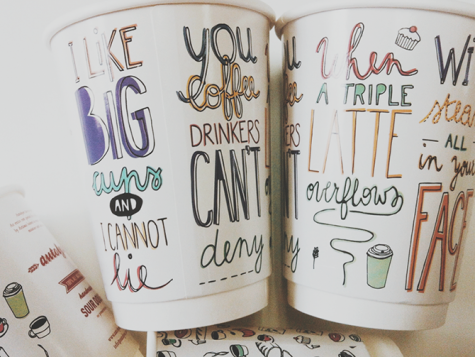 I LIKE
BIG
cups
AND
I CANNOT
lie
you
coffee
DRINKERS
CAN'T
deny
When
A TRIPLE
LATTE
overflows
Wi
ALL
in you
FACE